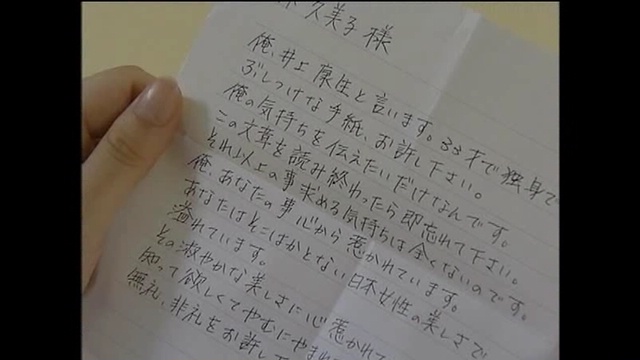 久美子様
俺、井上康生と言います。33才で独身で
ぶしつけな手紙、お許し下さい。
俺の気持ちを伝えたいだけなんです。
この文章を読み終わったら即忘れて下さい。
それ以上の事求める気持ちは全くないのです。
俺、あなたの事心から惹かれています。
あなたはそこはかとない日本女性の美しさで
溢れています。
その淑やかな美しさに心惹かれて
知って欲しくてやむにやまれ
無礼、非礼をお許し